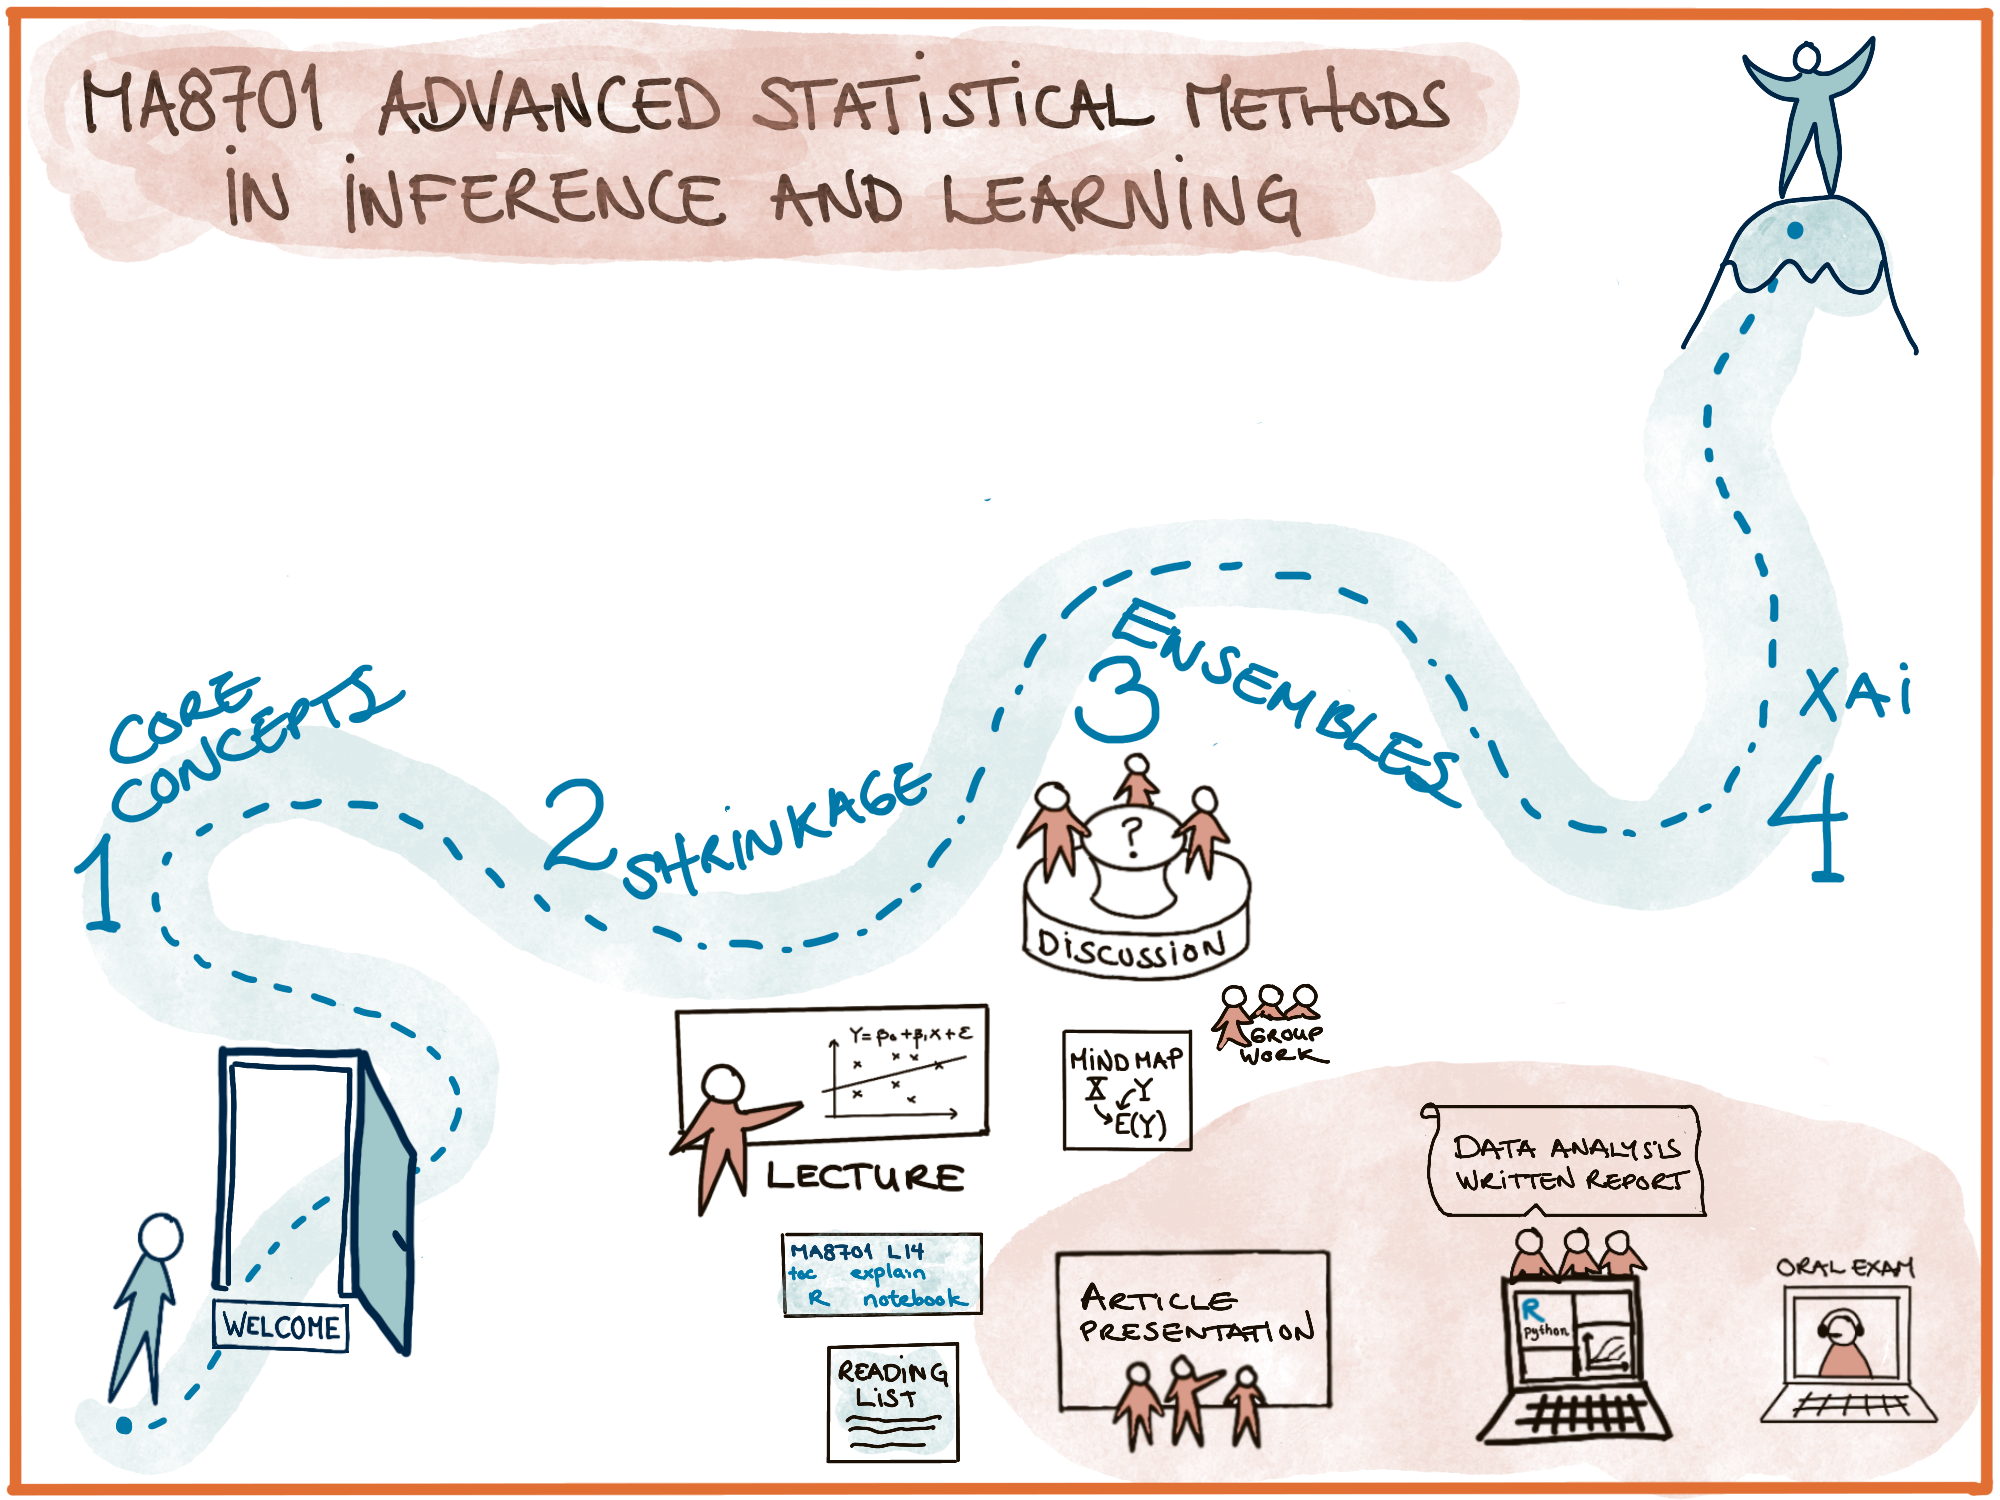 MA8701 ADVANCED STATISTICAL METHODS
IN INFERENCE AND LEARNING
CORE
CONCEPTS
1
2
SHRINKAGE
3
ENSEMBLES
XAi
4
?
DISCUSSION
GROUP
WORK
Y=β₀+β₁X+ε
LECTURE
MIND MAP
X Y
E(Y)
WELCOME
MA8701 L14
toc explain
R notebook
READING
LIST
ARTICLE
PRESENTATION
DATA ANALYSIS
WRITTEN REPORT
R
python
ORAL EXAM